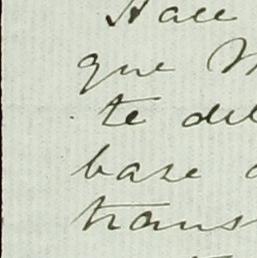 Hace
que
te
base
trans